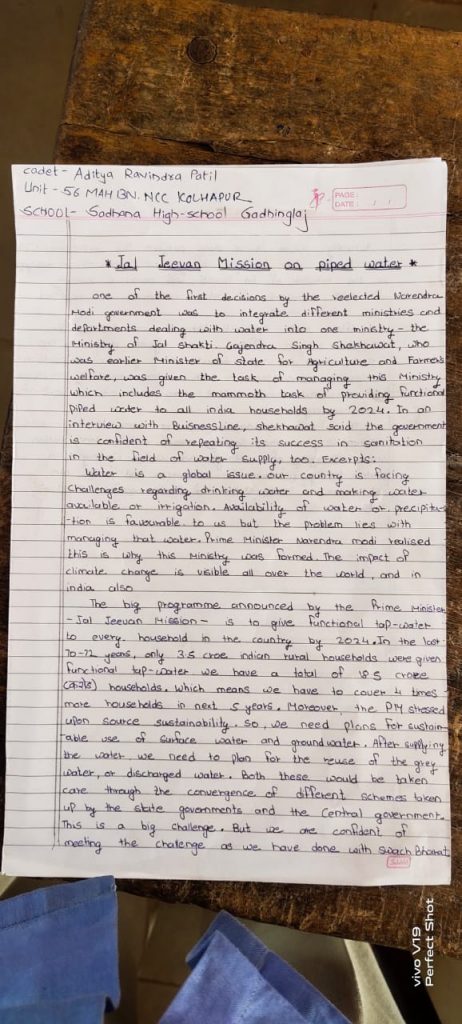 cadet - Aditya Ravindra Patil
Unit - 56 MAH BN. NCC KOLHAPUR
SCHOOL- Sadhana High-school Gadhinglaj
PAGE:
DATE: / /
* Jal Jeevan Mission on piped water *
one of the first decisions by the reelected Narendra
Modi government was to integrate different ministries and
departments dealing with water into one ministry - the
Ministry of Jal shakti. Gajendra Singh Shakhawat, who
was earlier Minister of state for Agriculture and Farmers
welfare, was given the task of managing this Ministry
which includes the mammoth task of providing functional
piped water to all india households by 2024. In an
interview with BuisnessLine, shekhawat said the government
is confident of repeating its success in sanitation
in the field of water supply, too. Excerpts:
Water is a global issue. our country is facing
challenges regarding drinking water and making water
available or irrigation. Availability of water or precipita-
-tion is favourable to us but the problem lies with
managing that water. Prime Minister Narendra modi realised
this is why this Ministry was formed. The impact of
climate change is visible all over the world, and in
india also
The big programme announced by the Prime Minister
- Jal Jeevan Mission - is to give functional tap-water
to every household in the country by 2024. In the last
70-72 years, only 3.5 croe indian rural households were given
functional tap-water we have a total of 18.5 crore
households. which means we have to cover 4 times
more households in next 5 years. Moreover, the PM stressed
upon source sustainability. So, we need plans for sustain-
able use of surface water and groundwater. After supplying
the water, we need to plan for the reuse of the grey
water, or discharged water. Both these would be taken
care through the convergence of different schemes taken
up by the state governments and the Central government.
This is a big challenge. But we are confident of
meeting the challenge as we have done with swach Bharat
vivo V19
Perfect Shot